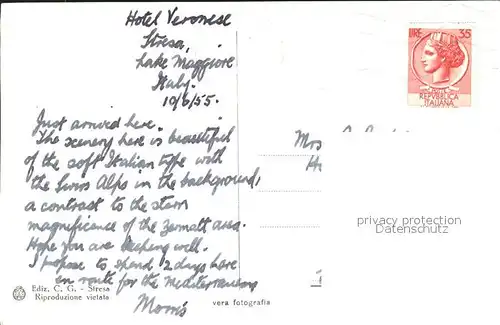 Hotel Veronese
Stresa,
Lake Maggiore
Italy.
10/6/55.
Just arrived here.
The scenery here is beautiful
of the soft Italian type with
the Swiss Alps in the background,
a contrast to the stern
magnificence of the Zermatt area.
Hope you are keeping well.
I propose to spend 2 days here
en route for the Mediterranean
Morris
LIRE 35
POSTE
REPVBBLICA
ITALIANA
Mrs
privacy protection
Datenschutz
Ediz. C. G. - Stresa
Riproduzione vietata
vera fotografia